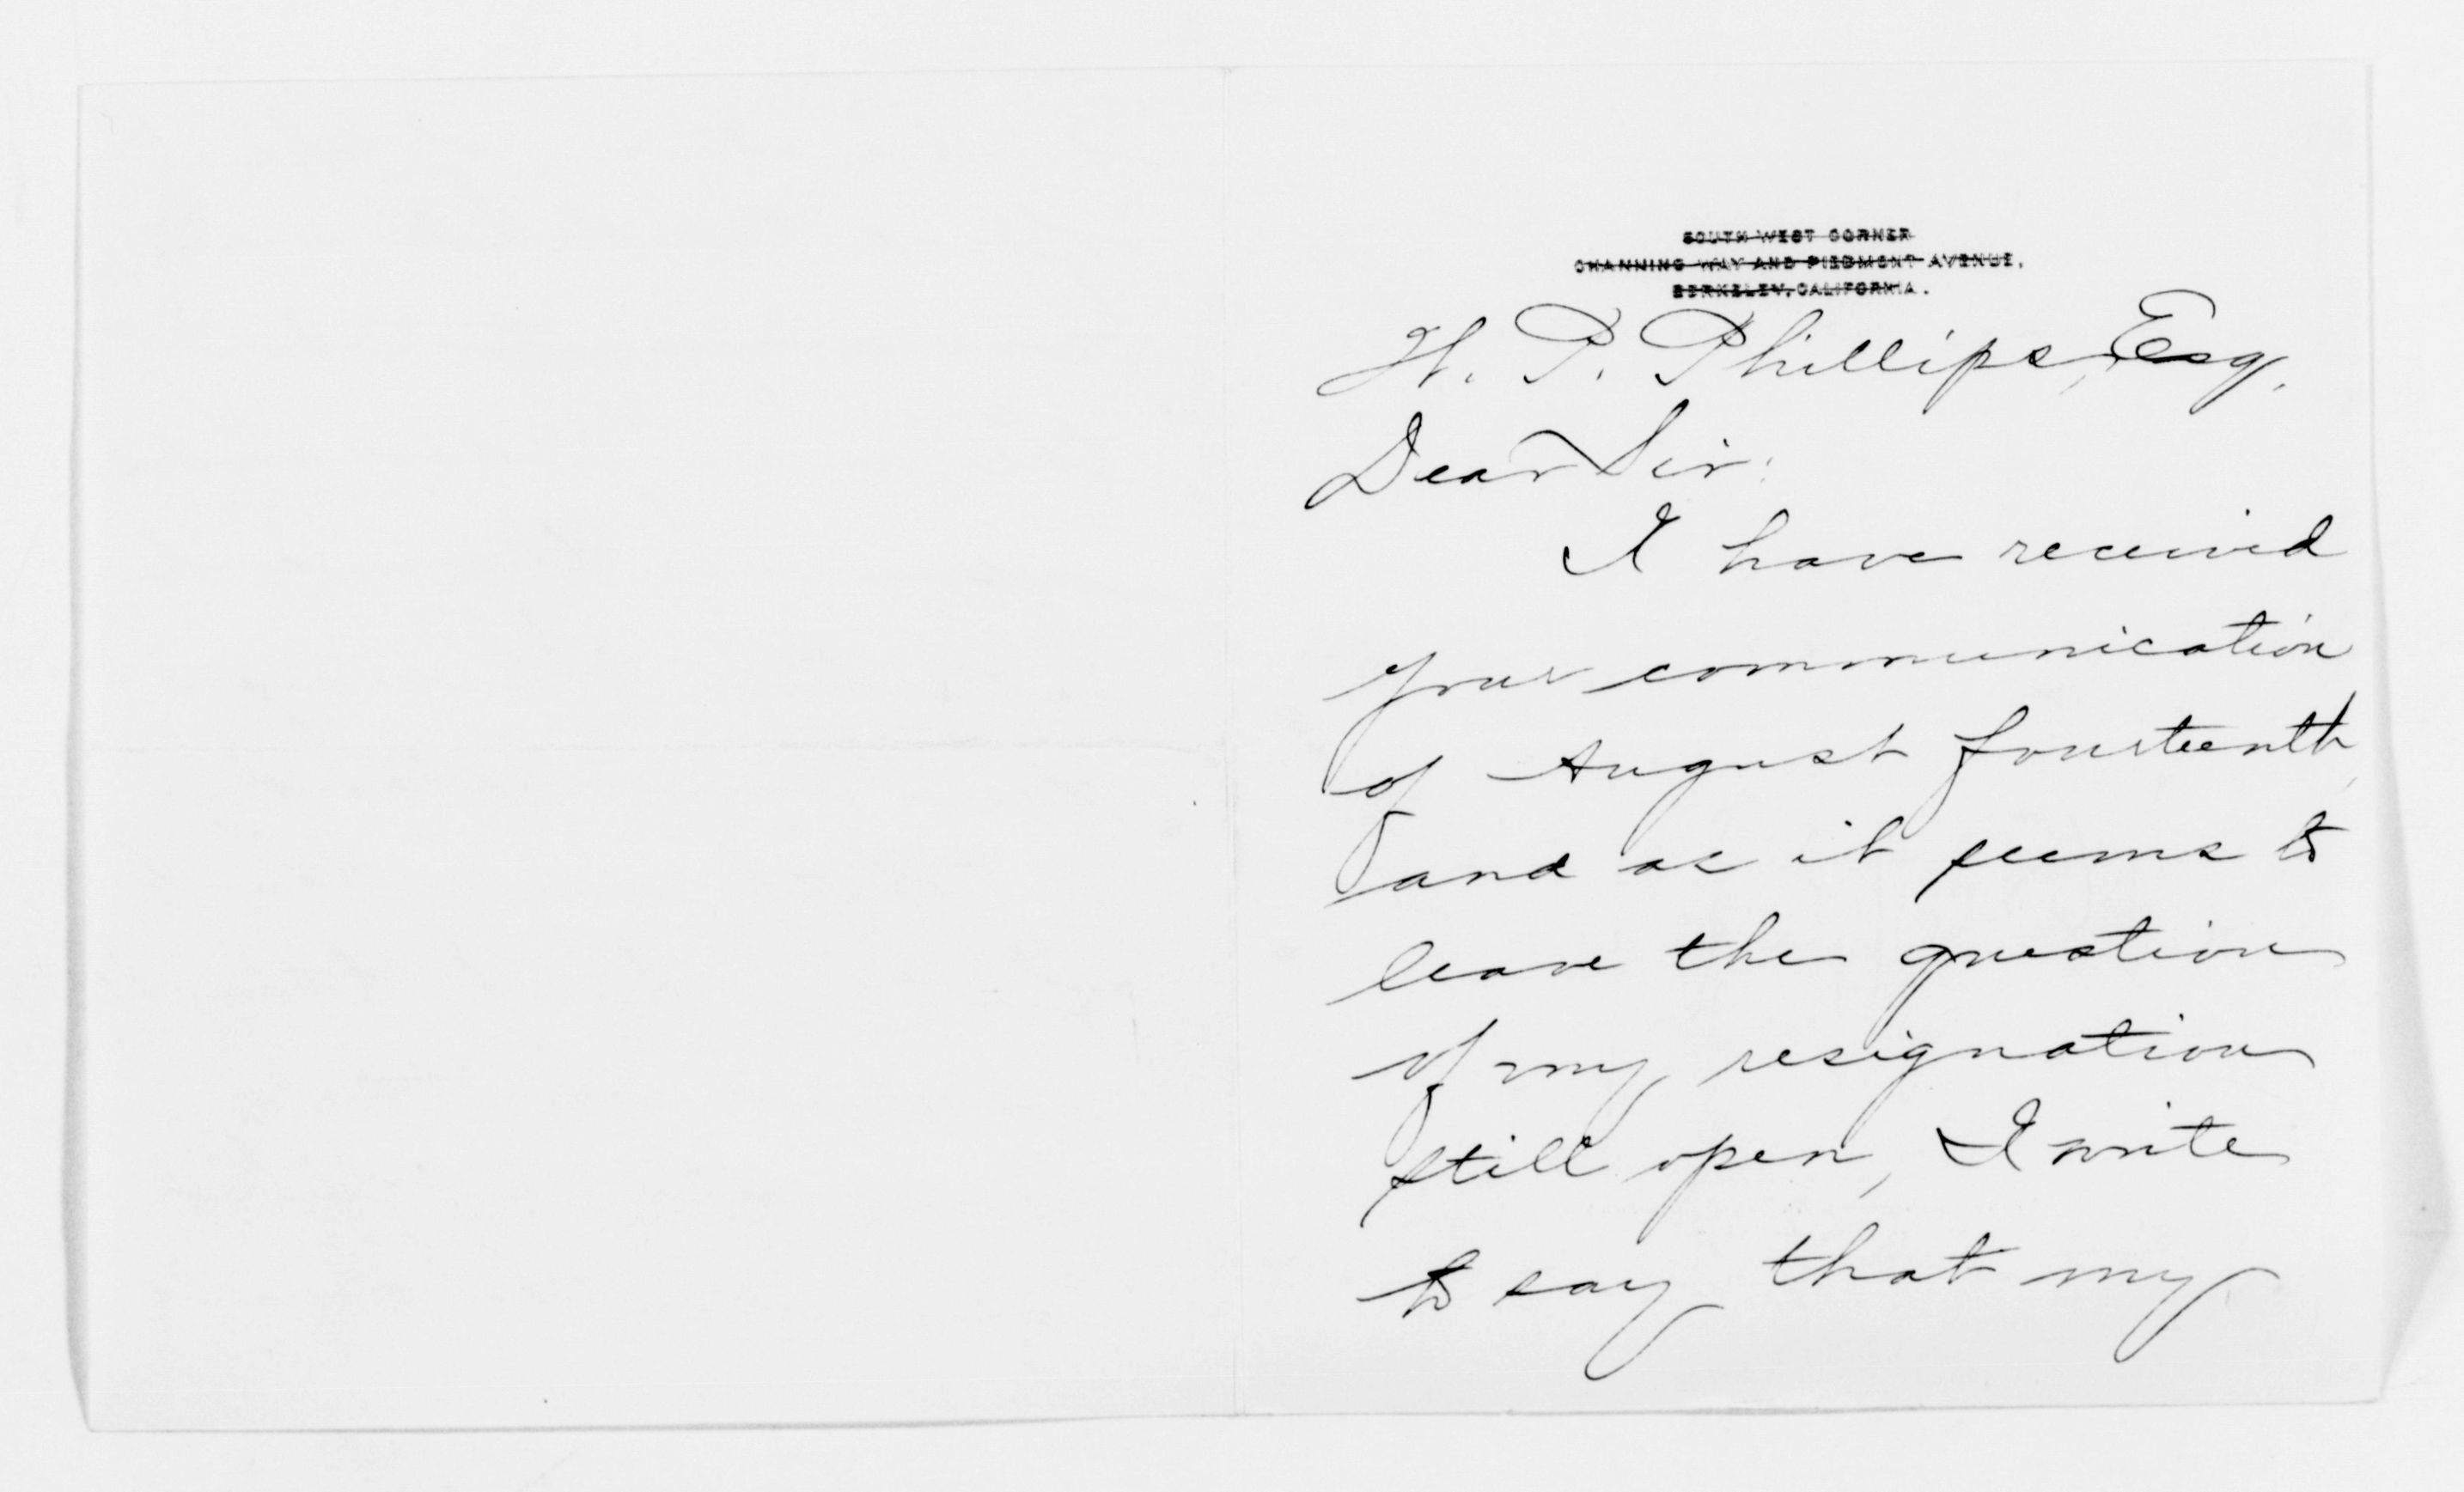 SOUTH WEST CORNER
CHANNING WAY AND PIEDMONT AVENUE,
BERKELEY, CALIFORNIA.
H. P. Phillips, Esq.
Dear Sir:
I have received
your communication
of August fourteenth,
and as it seems to
leave the question
of my resignation
still open, I write
to say that my